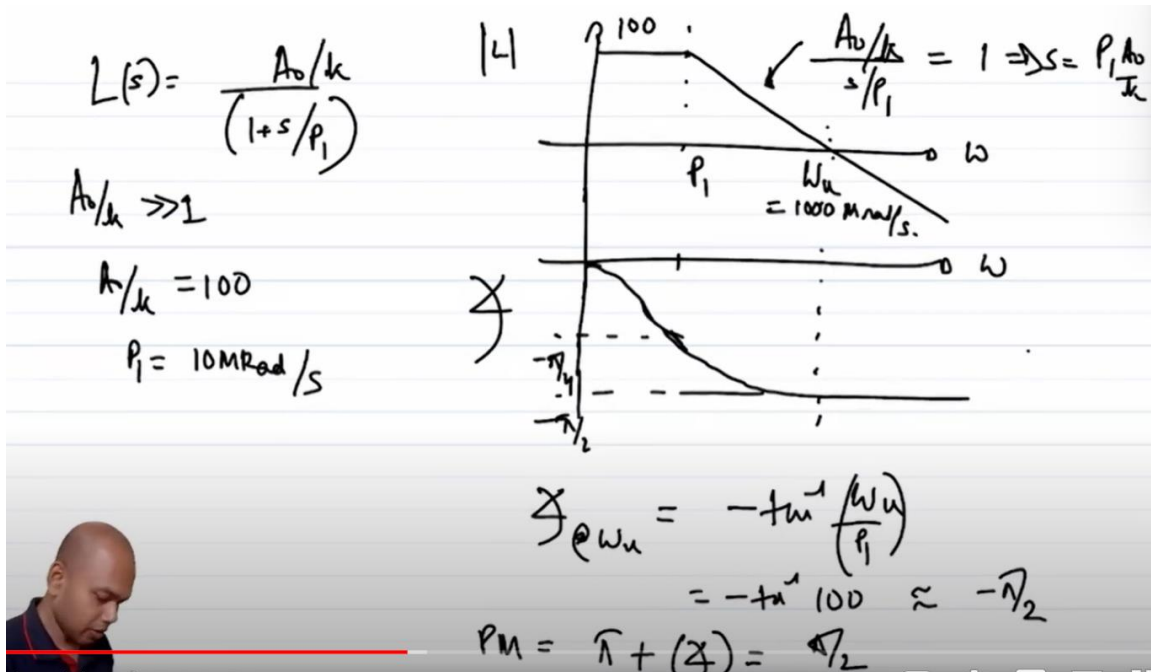 L(s) = A₀/k / (1+s/P₁)
A₀/k >> 1
A₀/k = 100
P₁ = 10MRad/s
|L|
100
A₀/k / s/P₁ = 1 ⇒ s = P₁ A₀/k
P₁
ω
ωu
= 1000 Mrad/s.
ω
∡
-π/4
-π/2
∡@ωu = -tan⁻¹ (ωu/P₁)
= -tan⁻¹ 100 ≈ -π/2
PM = π + (∡) = π/2